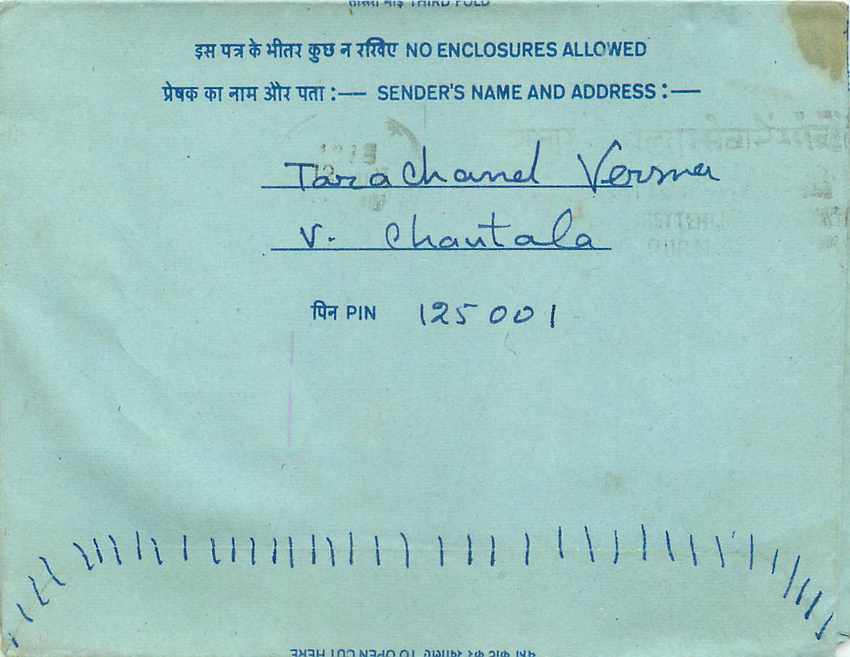 तीसरा मोड़ THIRD FOLD
इस पत्र के भीतर कुछ न रखिए NO ENCLOSURES ALLOWED
प्रेषक का नाम और पता :— SENDER'S NAME AND ADDRESS :—
Tarachand Verma
V. Chautala
पिन PIN 125001
TO OPEN CUT HERE